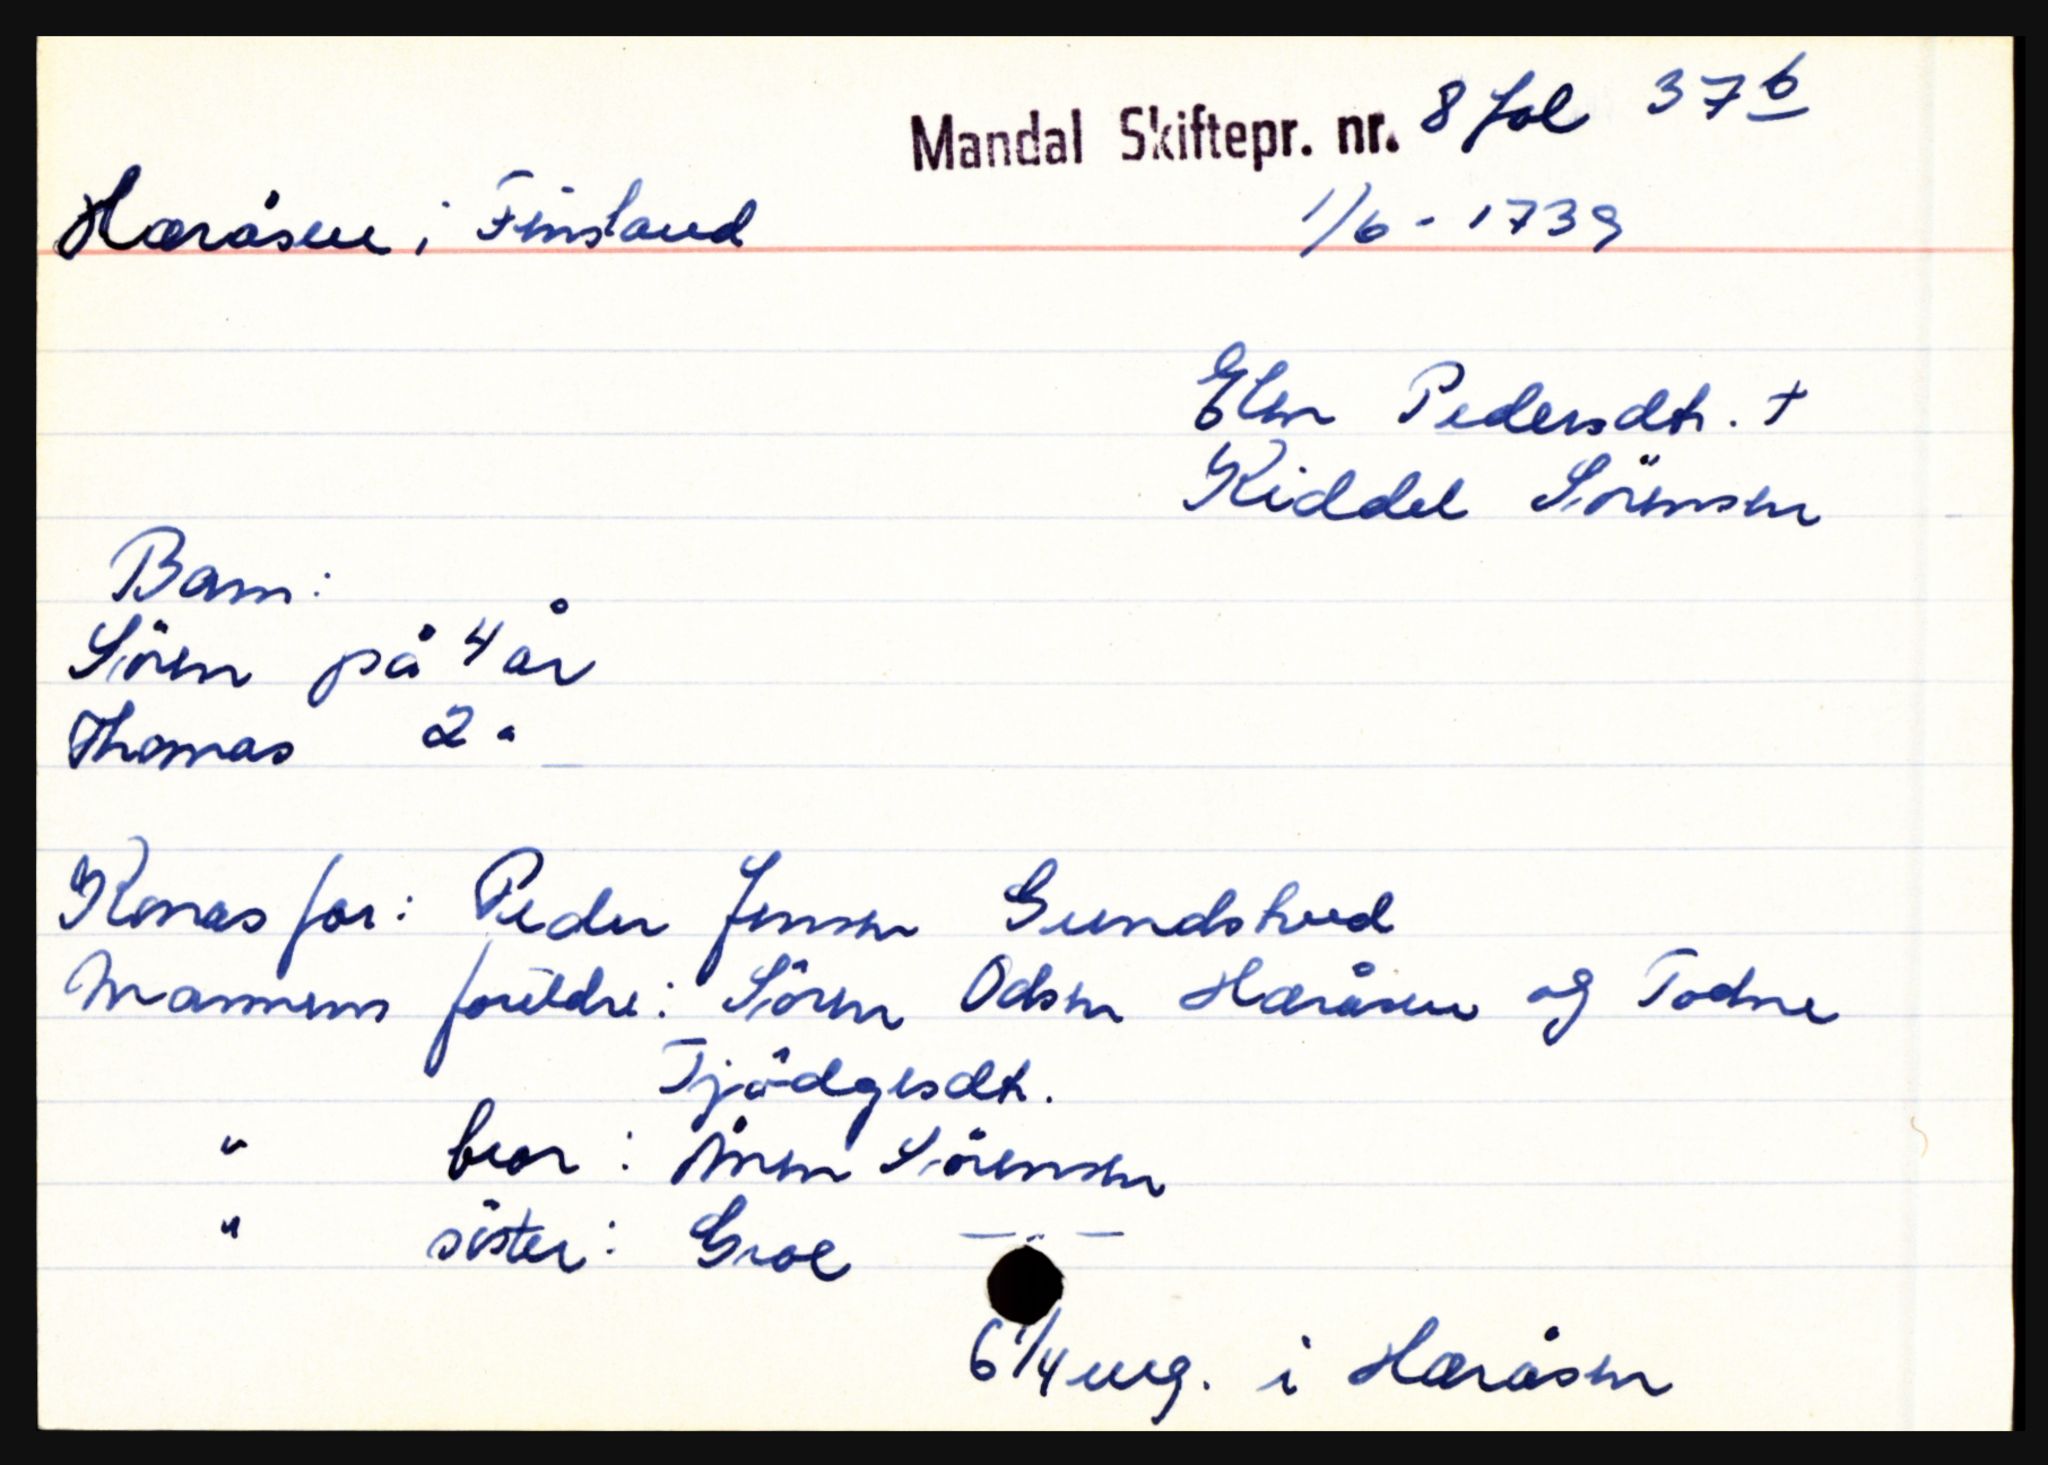 Mandal Skiftepr. nr. 8 fol 37b
Hæråsen i Finsland 1/6 - 1739
Elen Pedersdtr. +
Kiddel Sörensen
Barn:
Sören på 4 år
Thomas 2 "
Konas far: Peder Jensen Gundstved
Mannens foreldre: Sören Odsen Hæråsen og Todne
Tjödgesdtr.
" bror: Ånen Sörensen
" söster: Groe — " —
6 1/4 eng. i Hæråsen